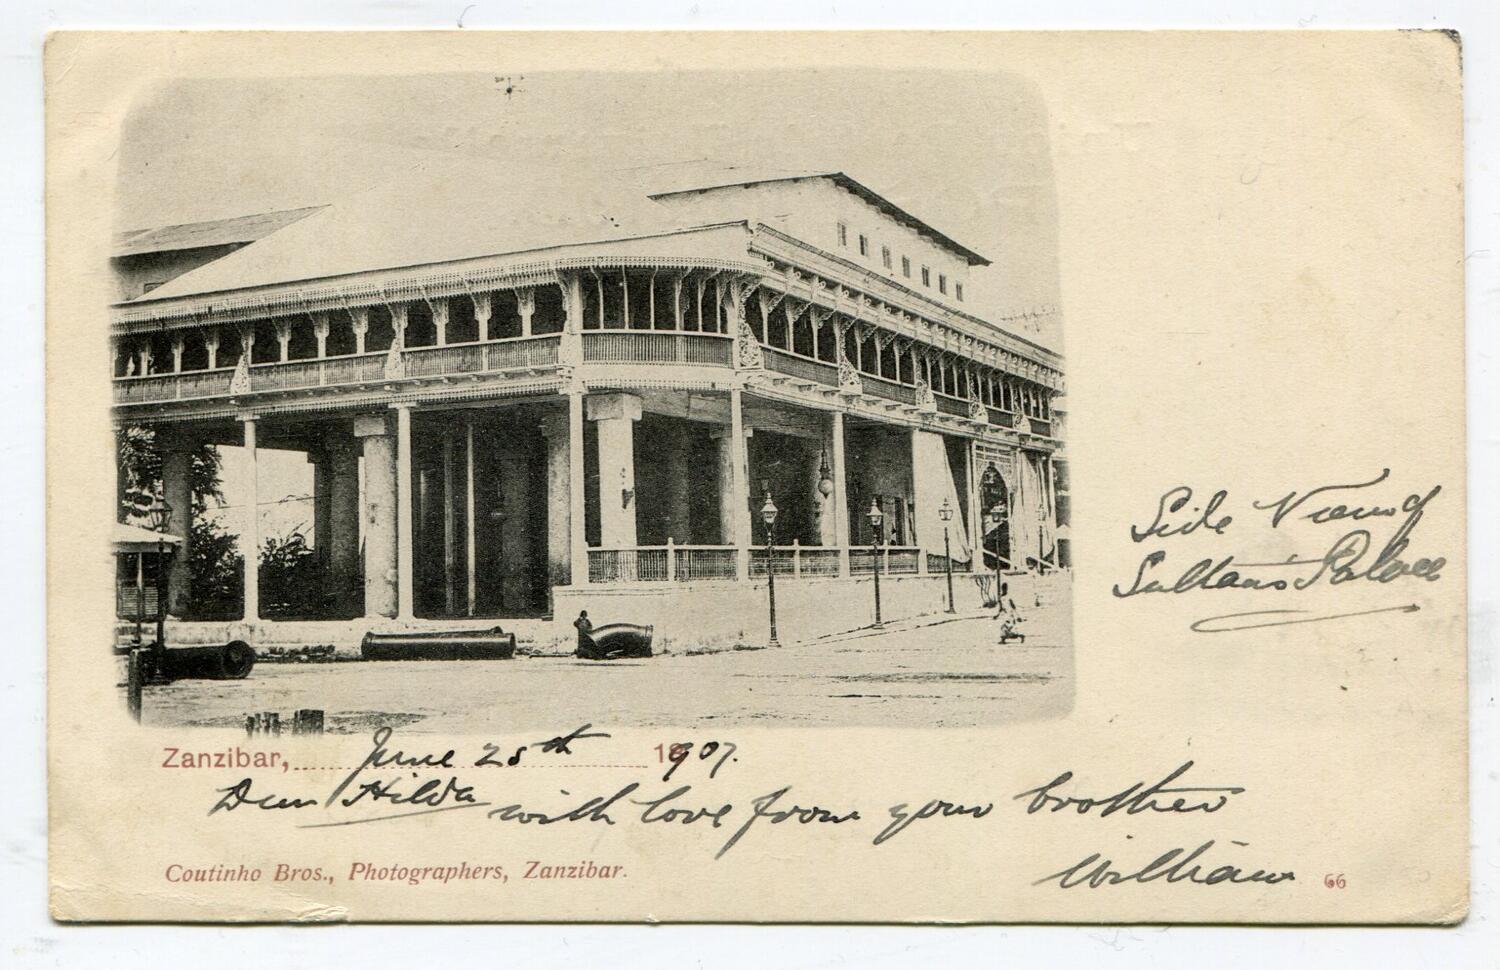 Side View of
Sultans Palace
Zanzibar, June 25th 1907.
Dear Hilda with love from your brother
William
Coutinho Bros., Photographers, Zanzibar.
66